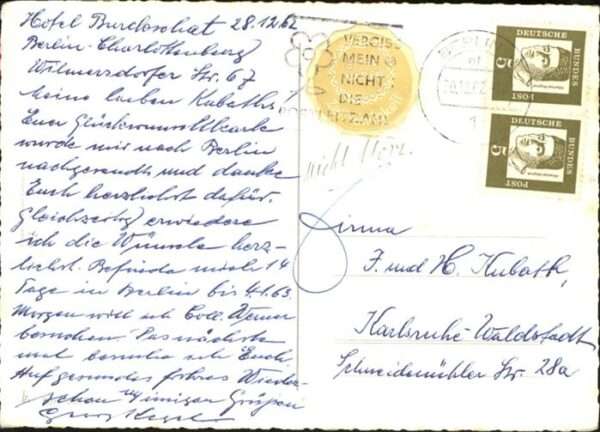 Hotel Burchschat 28.12.62
Berlin-Charlottenburg
Wilmersdorfer Str. 67
Meine lieben Kubaths!
Eure Glückwunschkarte
wurde mir nach Berlin
nachgesandt und danke
Euch herzlichst dafür.
Gleichzeitig erwiedere
ich die Wünsche herz-
lichst. Befinde mich 14
Tage in Berlin bis 4.1.63.
Morgen will ich Coll. Werner
besuchen. Das nächste
mal besuche ich Euch.
Auf gesundes frohes Wieder-
sehen u. innigen Grüßen
VERGISS
MEIN
NICHT
DIE
POSTLEITZAHL
BERLIN
DEUTSCHE
BUNDES
POST
5
DEUTSCHE
BUNDES
POST
5
Firma
F. und H. Kubath,
Karlsruhe-Waldstadt
Schneidemühler Str. 28a